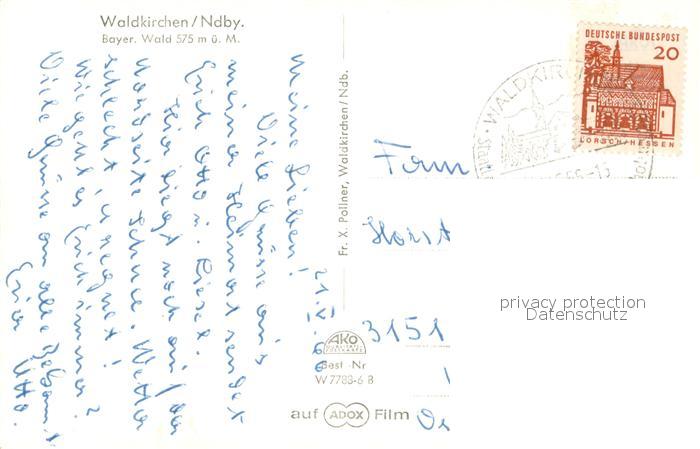 Waldkirchen/Ndby.
Bayer. Wald 575 m ü. M.
Meine Lieben! 21.V.66
Viele Grüsse aus
meiner Heimat sendet
Erich Otto u. Liesel.
Hier liegt noch auf der
Nordseite Schnee. Wetter
schlecht, regnet!
Wie geht es Euch immer?
Viele Grüsse an alle Bekannt.
Otto.
Fr. X. Pollner, Waldkirchen/Ndb.
DEUTSCHE BUNDESPOST
20
LORSCH/HESSEN
WALDKIRCH
66-13
Fam
Horst
3151
privacy protection
Datenschutz
AKO
QUALITÄTS
POSTKARTE
Best-Nr
W 7788-6 B
auf ADOX Film